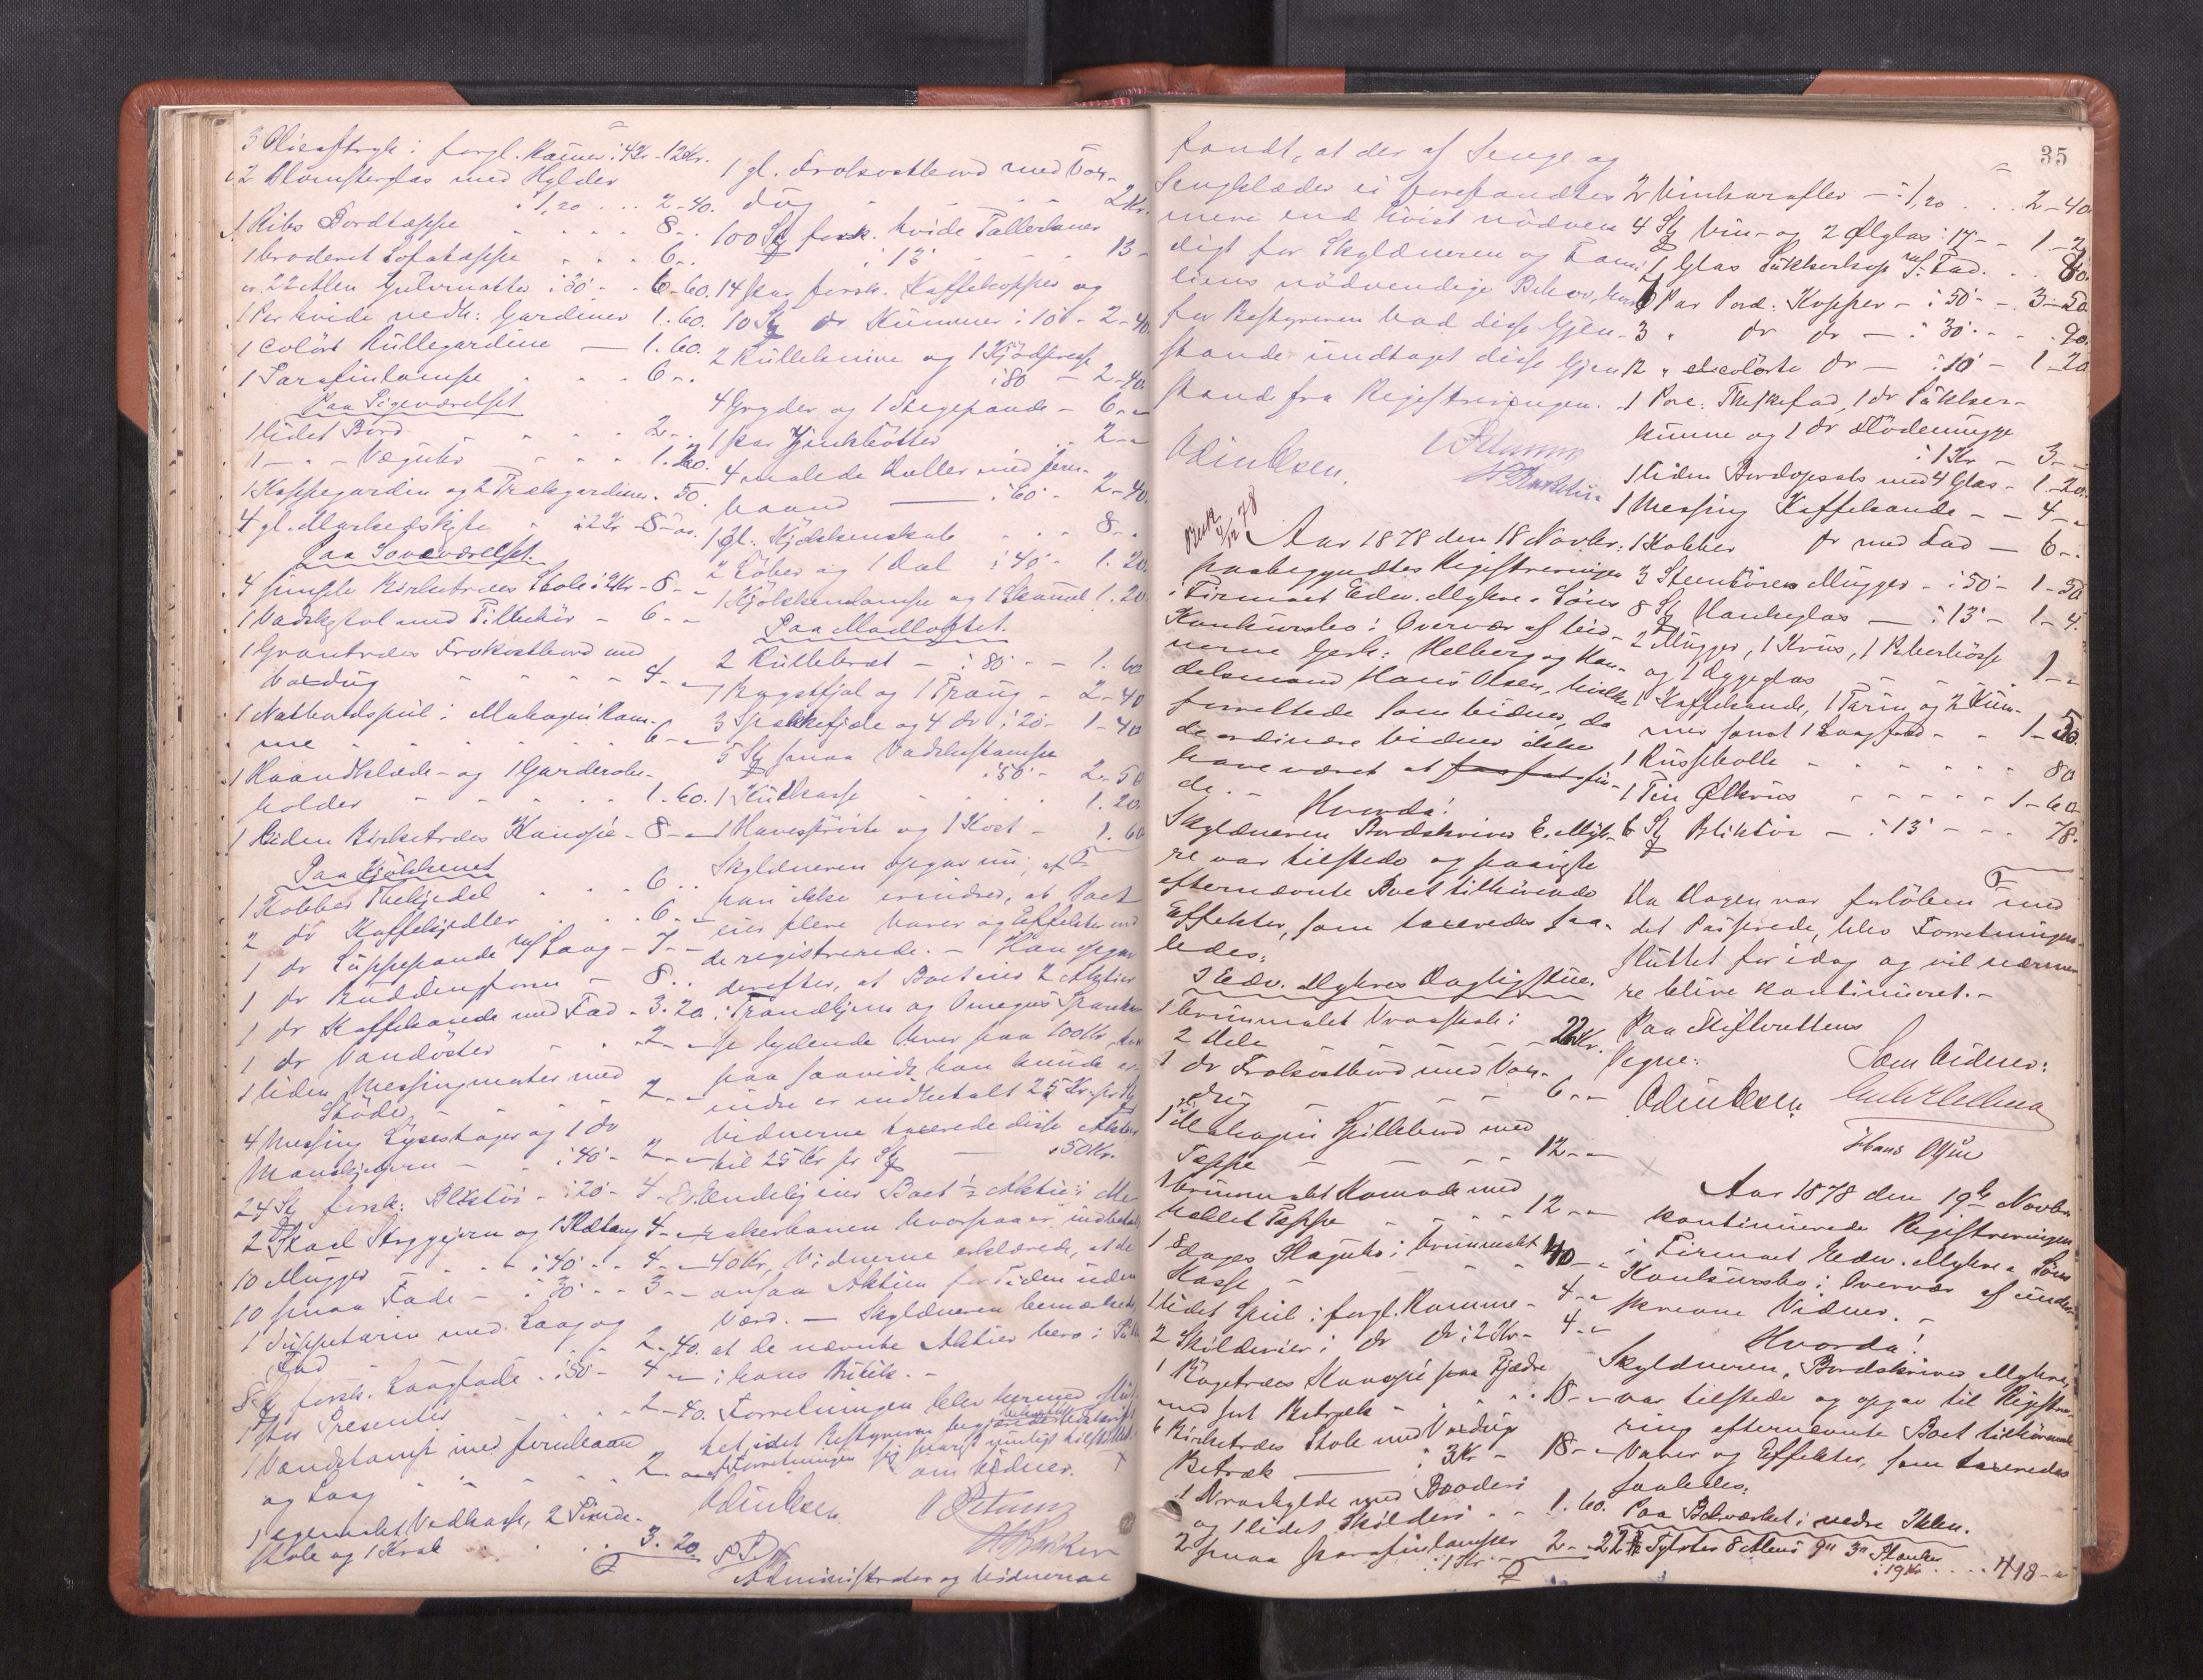 3 Olieaftryk i forgl. Rammer : 4 Kr - 12 Kr.
2 Blomsterglas med Hylder
: 1,20 . . . 2-40.
1 Ribs Bordtæppe . . . . 8 - .
1 broderet Sofatæppe . . . 6 - .
22 Alen Gulvmatter : 30 - - 6-60.
1 Par hvide Gardiner 1.60.
1 colört Rullegardine — 1.60.
1 Parafinlampe . . . 6 - .
Paa Pigeværelset
1 lidet Bord . . . 2 - .
1 - " - Væguhr . . . 1.20.
1 Kappegardin og 2 Trækgardiner . 50
4 gl. : 2 Kr - 8 -
Paa Soveværelset.
4 simple Birketræes Stole : 2 Kr - 8 - -
1 Vadskstol med Tilbehör - 6 - -
1 Grantræes Frokostbord med
Voxdug - - - - 4 - -
1 Speil i Mahogni Ram-
me . . . . . 6 - -
1 Haandklæde- og 1 Garderobe-
holder - - - . . 1.60.
1 liden Birketræes Kanapé - 8 - -
Paa Kjökkenet
1 Kobber Thekjedel . . . 6 . .
2 do Kaffekjedler . . . 6. -
1 do Suppepande m/ Laag - 7 - -
1 do Buddingform - 8 . .
1 do Kaffekande med Fad - 3.20.
1 do Vandöster - . . 2 - -
1 liden Messingmorter med
Stöder - - - - 2 - -
4 Messing Lysestager og 1 do
- - : 40 - 2 - -
24 St forsk: Bliktöi - : 20 - 4 - 80
2 Strygejern og 1 Ildtang 4 - -
10 Mugger - - - : 40 - - 4 - -
10 smaa Fade - : 30 - - 3 - -
1 Suppeterin med Laag og
Fad - - - 2-40.
8 St forsk. Laagfade . : 50 - 4 - -
1 stor Presenter . . . 2-40.
1 Vandstamp med Jernbaand
og Laag . . . . 2 - -
1 egemalet Vedkasse, 2
stole og 1 Krak . . . . 3.20
1 gl. Frokostbord med Vox-
dug - . . . . 2 Kr.
100 St forsk. hvide Tallerkener
: 13 - - - 13 -
14 par forsk. Kaffekopper og
10 St do Kummer : 10 - 2-40
2 Rulleknive og 1 Kjödpresse
: 80 - 2-40.
4 Gryder og 1 Stegepande - 6 - -
1 par Bötter . . 2 - -
4 malede Kuller med Jern-
baand — : 60 - 2-40.
1 gl. Kjökkenskab . . . 8 - .
2 Löber og 1 Bal : 40 - 1.20.
1 Kjökkenlampe og 1 Skammel 1.20.
Paa Madloftet.
2 Rullebræt - : 80 - - 1.60
1 Bagstfjæl og 1 Traug - 2-40
3 Spækkefjæle og 4 do : 20 - 1-40
5 St smaa Vadskestampe
: 50 - 2-50
1 Kulkasse . . . . 1.20.
1 Havespröite og 1 Kost - 1.60
Skyldneren opgav nu, at
han ikke erindrer, at Boet
eier flere Varer og Effekter end
de registrerede. - Han opgav
derefter, at Boet eier 2 Aktier
i Trondhjems og Omegns Sparekas-
se lydende hver paa 100 Kr,
paa saavidt han kunde er-
indre er indbetalt 25 Kr pr St
Vidnerne taxerede disse Aktier
til 25 Kr pr St — 50 Kr.
Endelig eier Boet ½ Aktie i Me-
rakerbanen hvorpaa er indbetalt
40 Kr, Vidnerne erklærede, at de
ansaa Aktien for Tiden uden
Værd. - Skyldneren bemærkede,
at de nævnte Aktier bero i
i hans Butik. -
Forretningen blev hermed slut-
tet, idet Bestyreren
om Vidner.
Odin Olsen.
Administrator og Vidnerne
35
fandt, at der af Senge og
Sengklæder ei forefandtes
mere end höist nödven
digt for Skyldneren og Fami
liens nödvendige Behov,
for Bestyreren bad disse Gjen-
stande undtaget disse Gjen
stande fra Registreringen.
Odin Olsen.
Besk. 4/12 78
Aar 1878 den 18 Novbr:
paabegyndtes Registreringen
i Firmaet Edv. Myhre & Söns
Konkursbo i Overvær af Vid-
nerne Gerh: Helberg og Han-
delsmand Hans Olsen, hvilke
forrettede som Vidner, da
de ordinære Vidner ikke
have været at fin-
de. -
Hvorda!
Skyldneren Bordskriver E. Myh-
re var tilstede og paaviste
efternævnte Boet tilhörende
Effekter, som taxeredes saa-
ledes:
I Edv. Myhres Dagligstue.
1 brunmalet Vraaskab i
2 Dele - - - - 22 Kr.
1 do Frokostbord med Vox-
dug - - - - 6 - -
1 Mahogni Spillebord med
Tæppe - - - - 12 - -
1 brunmalet Komode med
heklet Tæppe - - - 12 - -
1 8 Dages Slaguhr i brunmalet
Kasse - - - - 40 - -
1 lidet Speil i forgl. Ramme - 4 - -
2 Skilderier i do do : 2 Kr - 4 - -
1 Bögetræes Kanapé paa Fjædre
med sort Betræk - . . 18 - -
6 Birketræes Stole med Voxdugs
Betræk — : 3 Kr - 18 - -
1 Vraahylde med Broderi
og 1 lidet Skilderi - . 1.60.
2 smaa Parafinlamper
: 1 Kr - - 2 - -
2 Vinkarafler - : 1,20 . . . 2-40
4 St Vin- og 2 Ölglas : 17 - - 1-2
1 Glas Sukkerkop m/ Fad . . . 80.
Par Porc: Kopper - : 50 - - 3-50.
3 " do do - : 30 - - . 90.
12 " decolörte do - : 10 - 1-20
1 Porc: Thefad, 1 do Sukker-
kumme og 1 do Flödemugge
: 1 Kr - 3 - -
1 liden Bordopsats med 4 Glas - 1-20.
1 Messing Kaffekande - - 4 - -
1 Kobber do med Fad - 6 - .
3 Steentöres Mugger - : 50 - 1-50
8 St Hankeglas - : 13 - 1-4.
2 Mugger, 1 Krus, 1 Peberbösse
og 1 Æggeglas - - - 1 - -
1 Kaffekande, 1 Terin, og 2 Kum-
mer samt 1 Laagfad - - 1-50.
1 Punschebolle - - - - - 80
1 Tin Ölkrus - - - - 1-60
6 St Bliktöi - : 13 - - . 78.
Da Dagen var forlöben med
det Passerede, blev Forretningen
sluttet for idag og vil nærme-
re blive kontinueret. -
Paa Skifterettens
Vegne:
Som Vidner:
Odin Olsen.
Hans Olsen
Aar 1878 den 19de Novbr
kontinuerede Registreringen
i Firmaet Edv. Myhre & Söns
Konkursbo i Overvær af under-
skrevne Vidner. -
Hvorda!
Skyldneren, Bordskriver Myhre,
var tilstede og opgav til Registre-
ring efternævnte Boet tilhörende
Varer og Effekter, som taxeredes
saaledes:
Paa Bolværket i nedre Ihlen.
22 Tylvter 8 Alens 9" 3" Planker
: 19 Kr . . . . 418 - -